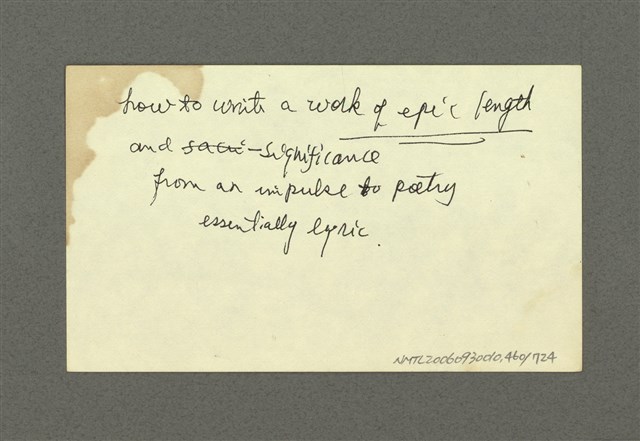 how to write a work of epic length
and significance
from an impulse to poetry
essentially lyric.
NMTL20060930010.460/724